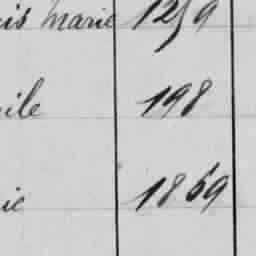 is marie 1259
ile 198
ie 1869